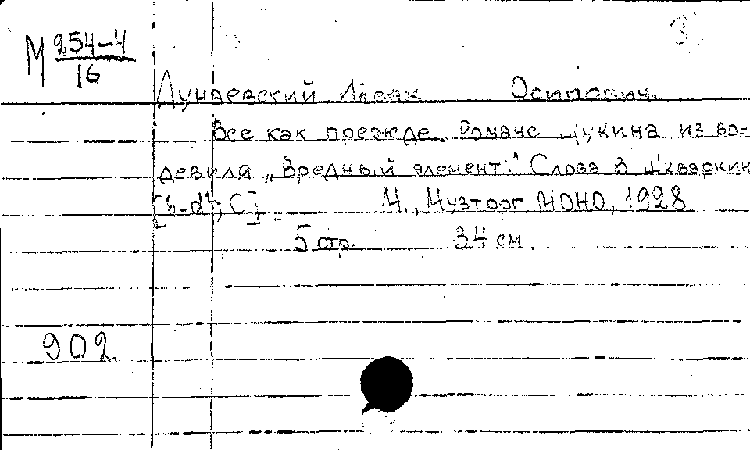 М 254-4
16
3
Дунаевский Исаак Осипович.
Все как прежде. Романс Лукина из во-
девиля „Вредный элемент." Слова В. Шкваркин
[h-d²; C] М., Музторг МОНО, 1928
5 стр. 34 см.
902